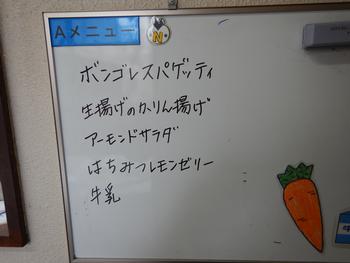 Aメニュー
N
ボンゴレスパゲッティ
生揚げのかりん揚げ
アーモンドサラダ
はちみつレモンゼリー
牛乳